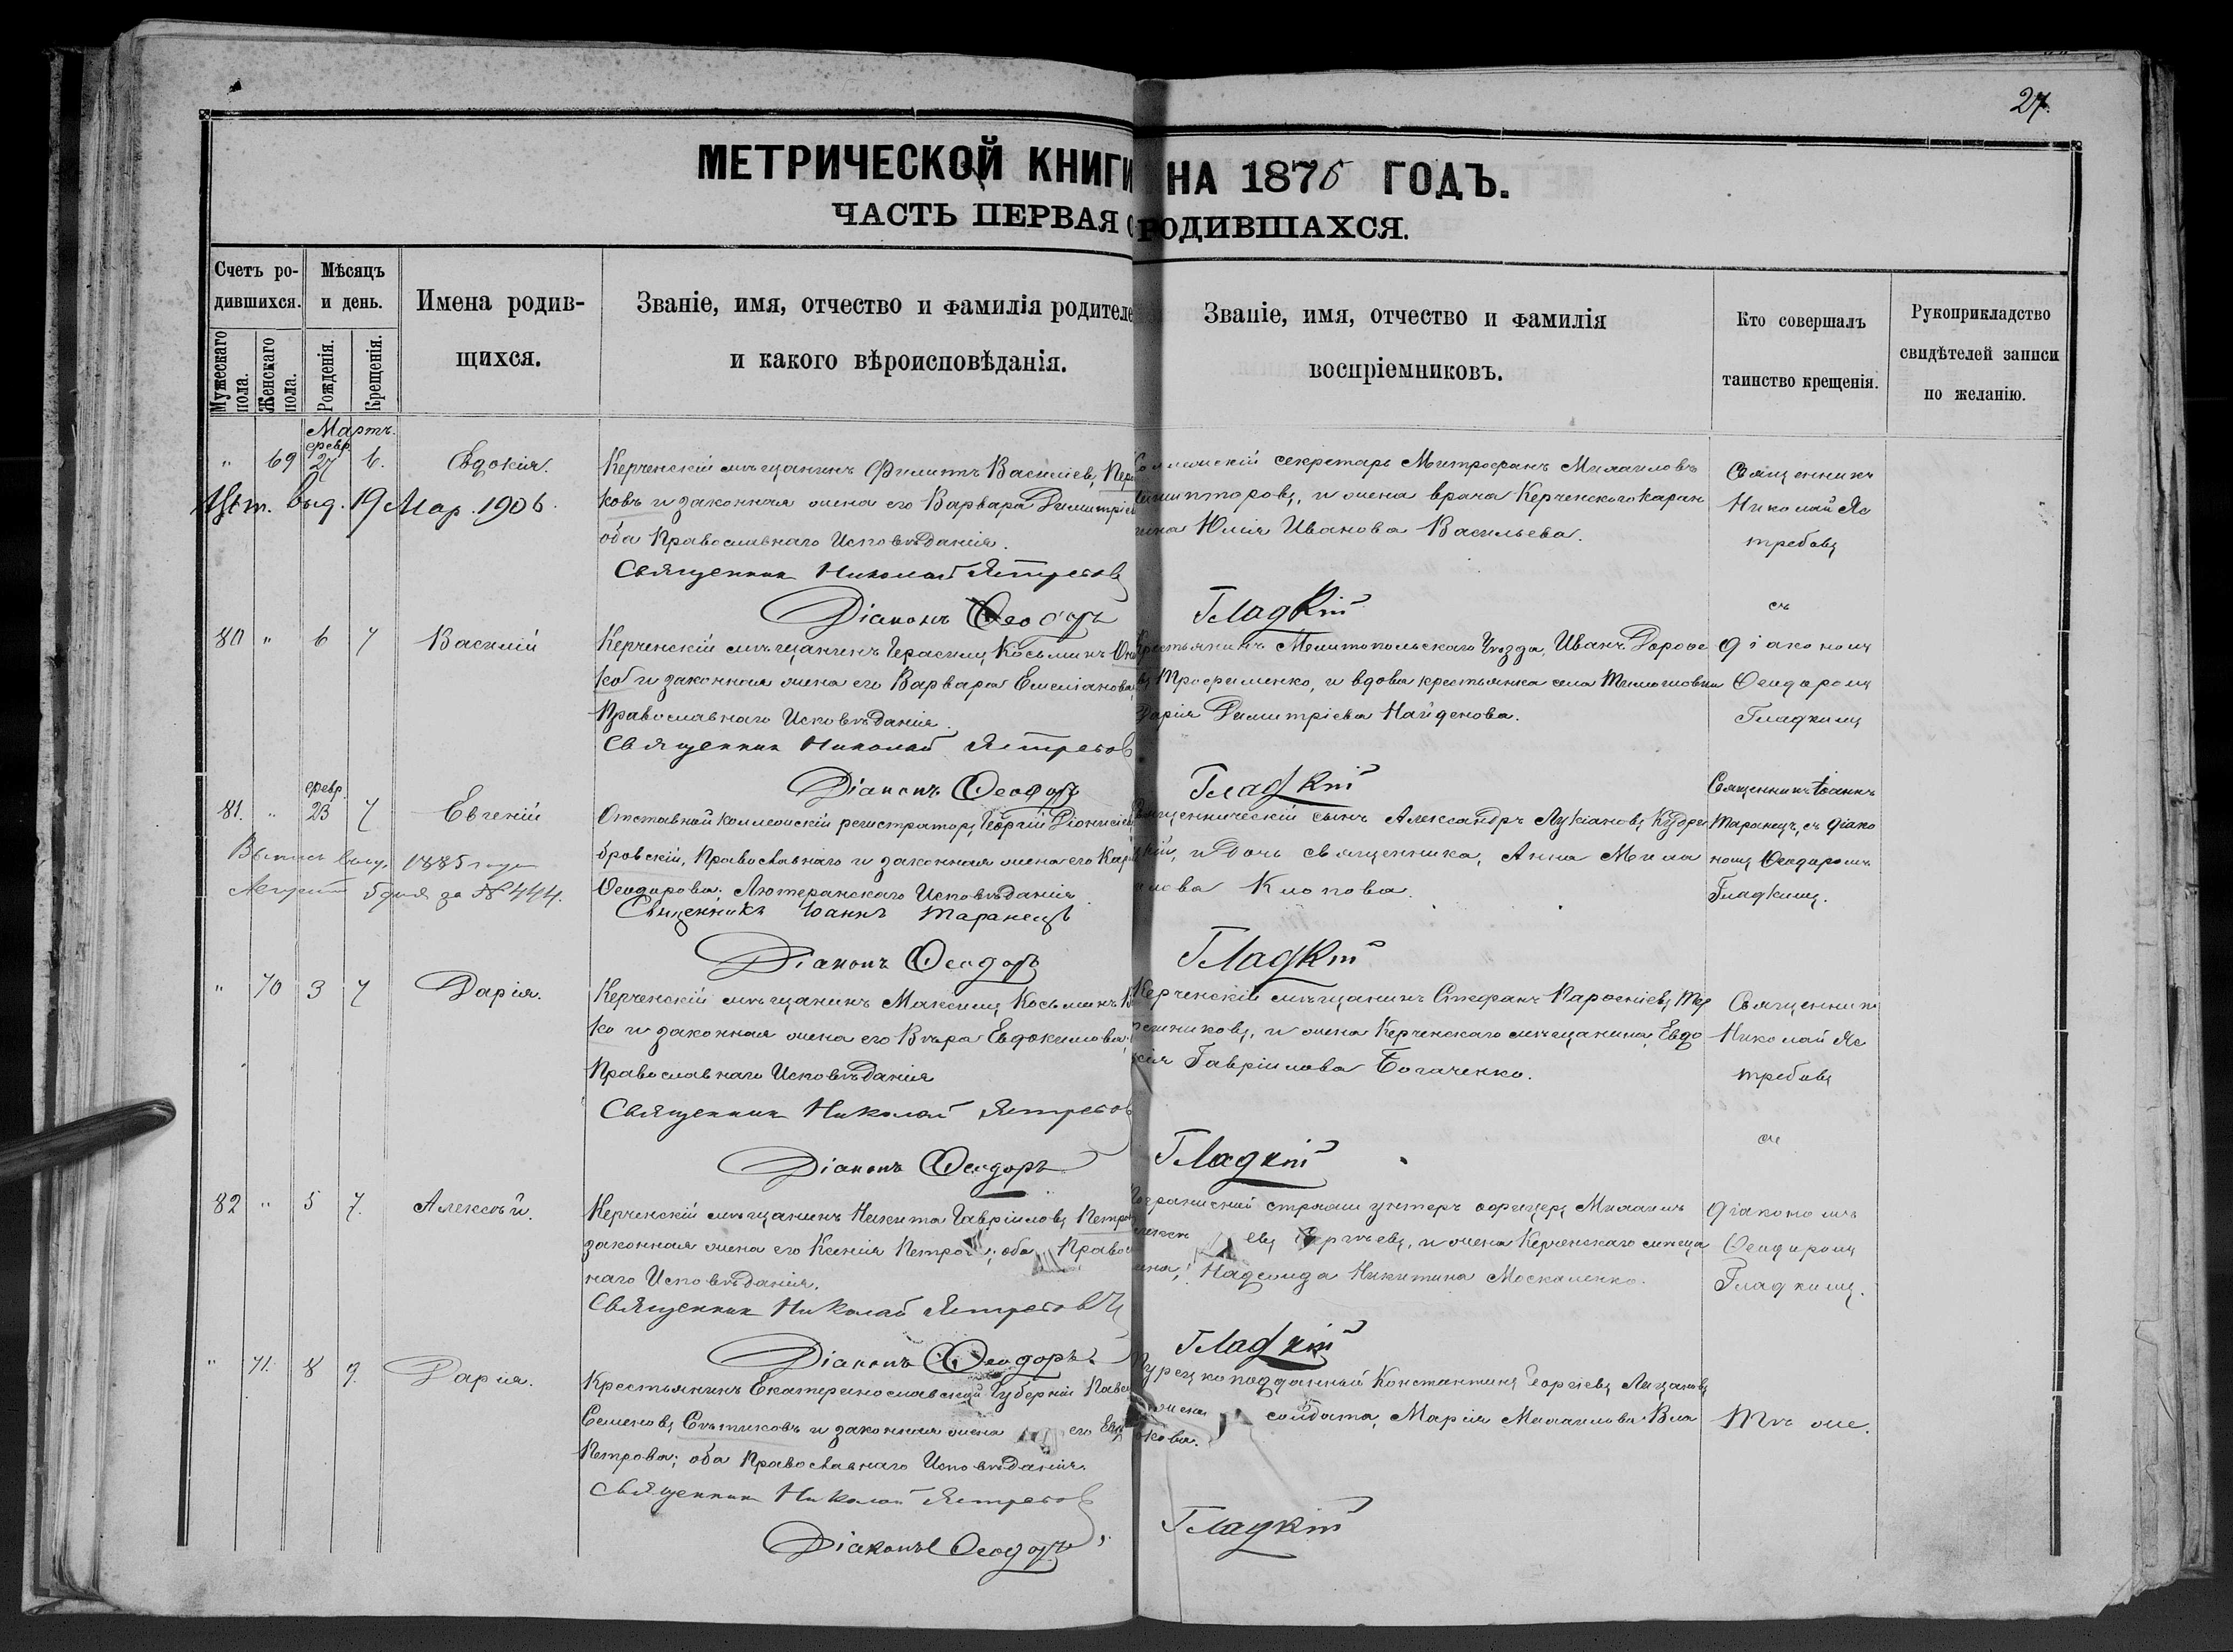 27.
МЕТРИЧЕСКОЙ КНИГИ НА 1875 ГОДЪ.
ЧАСТЬ ПЕРВАЯ О РОДИВШАХСЯ.
Счетъ ро-
дившихся.
Мужескаго пола.
Женскаго пола.
Мѣсяцъ
и день.
Рожденія.
Крещенія.
Имена родив-
щихся.
Званіе, имя, отчество и фамилія родителе
и какого вѣроисповѣданія.
Званіе, имя, отчество и фамилія
воспріемниковъ.
Кто совершалъ
таинство крещенія.
Рукоприкладство
свидѣтелей записи
по желанію.
Мартъ.
февр.
" 69 27 6. Евдокія.
Мет. выд. 19 Мар. 1906.
Керченскій мѣщанинъ Филиппъ Василіевъ
ковъ и законная жена его Варвара Димитріев
оба Православнаго Исповѣданія.
Священник Николай Ястребовъ
Діаконъ Ѳеодоръ Гладкій
секретарь Митрофанъ Михаиловъ
и жена врача Керченскаго каран
тина Юлія Иванова Васильева.
Священникъ
Николай Яс
требовъ
съ
80 " 6 7 Василій
Керченскій мѣщанинъ Герасимъ Косьминъ
ко и законная жена его Варвара Емеліанова,
Православнаго Исповѣданія.
Священник Николай Ястребов
Діаконъ Ѳеодоръ Гладкій
Крестьянинъ Мелитопольскаго Уѣзда, Иванъ Дорофе
въ Трофименко, и вдова крестьянка села
Дарія Димитріева Найденова.
діакономъ
Ѳеодоромъ
Гладкимъ
февр.
81. " 23 7 Евгеній
1885 года
5 дня за № 444.
Отставной коллежскій регистраторъ Георгій Діонисіев
бровскій, Православнаго и законная жена его
Ѳеодорова. Лютеранскаго Исповѣданія.
Священникъ Іоаннъ Таранецъ
Діаконъ Ѳеодоръ Гладкій
Священническій сынъ Александръ Лукіановъ
кій, и дочь священника, Анна Миха
илова Клопова.
Священникъ Іоаннъ
Таранецъ, съ діако
номъ Ѳеодоромъ
Гладкимъ.
" 70 3 7 Дарія.
Керченскій мѣщанинъ Максимъ Косьминъ
ко и законная жена его Вѣра Евдокимова,
Православнаго Исповѣданія
Священник Николай Ястребов
Діаконъ Ѳеодоръ Гладкій
Керченскій мѣщанинъ Стефанъ Парѳеніевъ
и жена Керченскаго мѣщанина, Евдо
кія Гавріилова Богаченко.
Священникъ
Николай Яс
требовъ
съ
82 " 5 7. Алексѣй.
Керченскій мѣщанинъ Никита Гавріиловъ Петро
законная жена его Ксенія оба Правос
наго Исповѣданія.
Священник Николай Ястребовъ
Діаконъ Ѳеодоръ Гладкій
стражи унтеръ офицеръ Михаилъ
и жена Керченскаго мѣща
нина, Надежда Никитина Москаленко.
діакономъ
Ѳеодоромъ
Гладкимъ.
" 71. 8 9. Дарія.
Крестьянинъ Екатеринославской Губерніи Павл
Семеновъ и законная жена его Евд
Петрова; оба Православнаго Исповѣданія.
Священник Николай Ястребов
Діаконъ Ѳеодоръ Гладкій
Турецкоподданный Константинъ Георгіевъ
жена солдата, Марія Михаилова
Тѣ же.